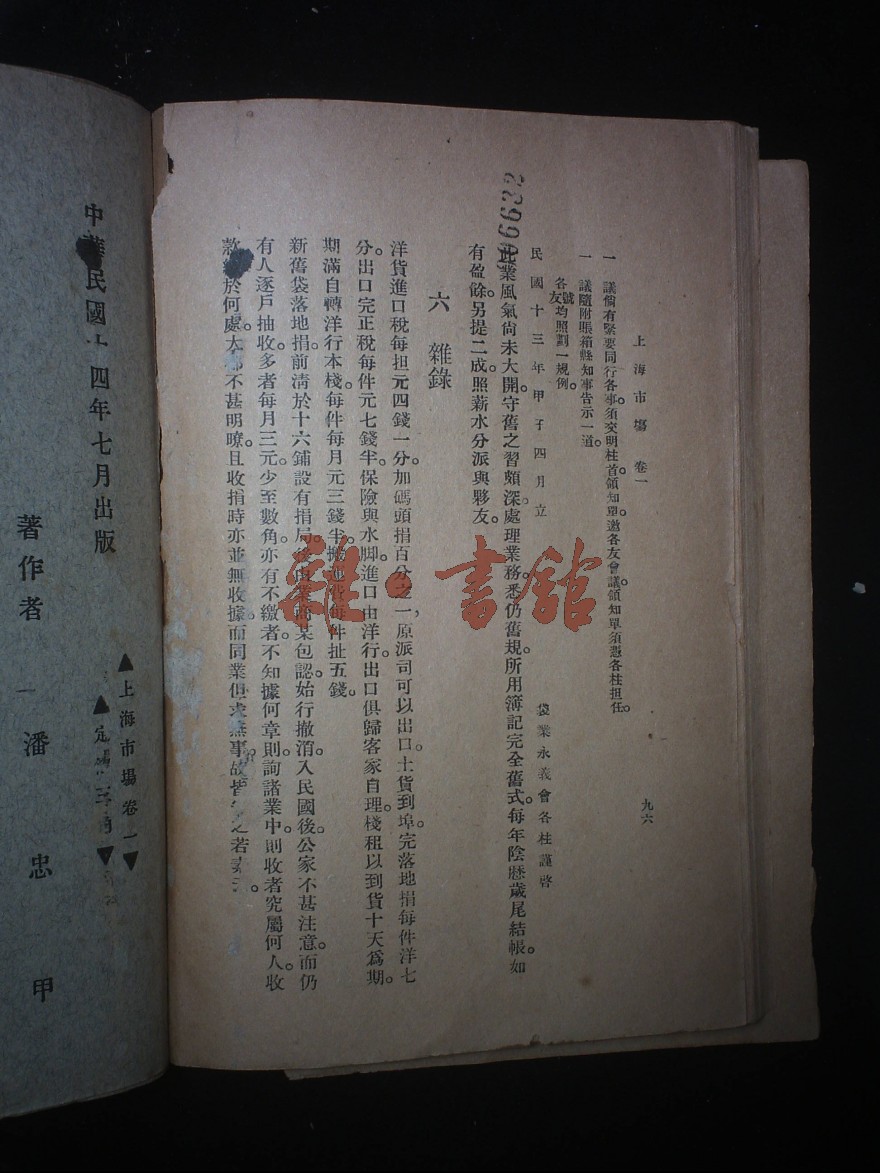 上海市場 卷一
九六
一 議倘有緊要同行各事須交明柱首領知單。邀各友會議。領知單須憑各柱担任。
一 議隨附賬箱縣知事告示一道。
各號友均照劃一規例。
民國十三年甲子四月立
袋業永義會各柱謹啓
此業風氣尚未大開。守舊之習頗深。處理業務。悉仍舊規。所用簿記完全舊式。每年陰歷歲尾結帳。如
有盈餘。另提二成。照薪水分派與夥友。
六 雜錄
洋貨進口稅每担元四錢一分。加碼頭捐百分之一，原派司可以出口。土貨到埠。完落地捐每件洋七
分。出口完正稅每件元七錢半。保險與水脚。進口由洋行。出口俱歸客家自理。棧租以到貨十天爲期。
期滿自轉洋行本棧。每件每月元三錢半。搬運費每件扯五錢。
新舊袋落地捐。前清於十六鋪設有捐局。後由業商某包認。始行撤消。入民國後。公家不甚注意。而仍
有人逐戶抽收。多者每月三元。少至數角。亦有不繳者。不知據何章則。詢諸業中。則收者究屬何人。收
款於何處。大都不甚明瞭。且收捐時亦並無收據。而同業但求無事。故皆之若
22990
雜·書館
中華民國十四年七月出版
著作者 潘忠甲
▲上海市場卷一▼
▲定▼